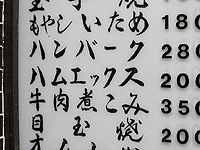 もやしいため 180
ハンバーク 280
ハムエックス 200
牛肉煮こみ 350
目玉焼 200